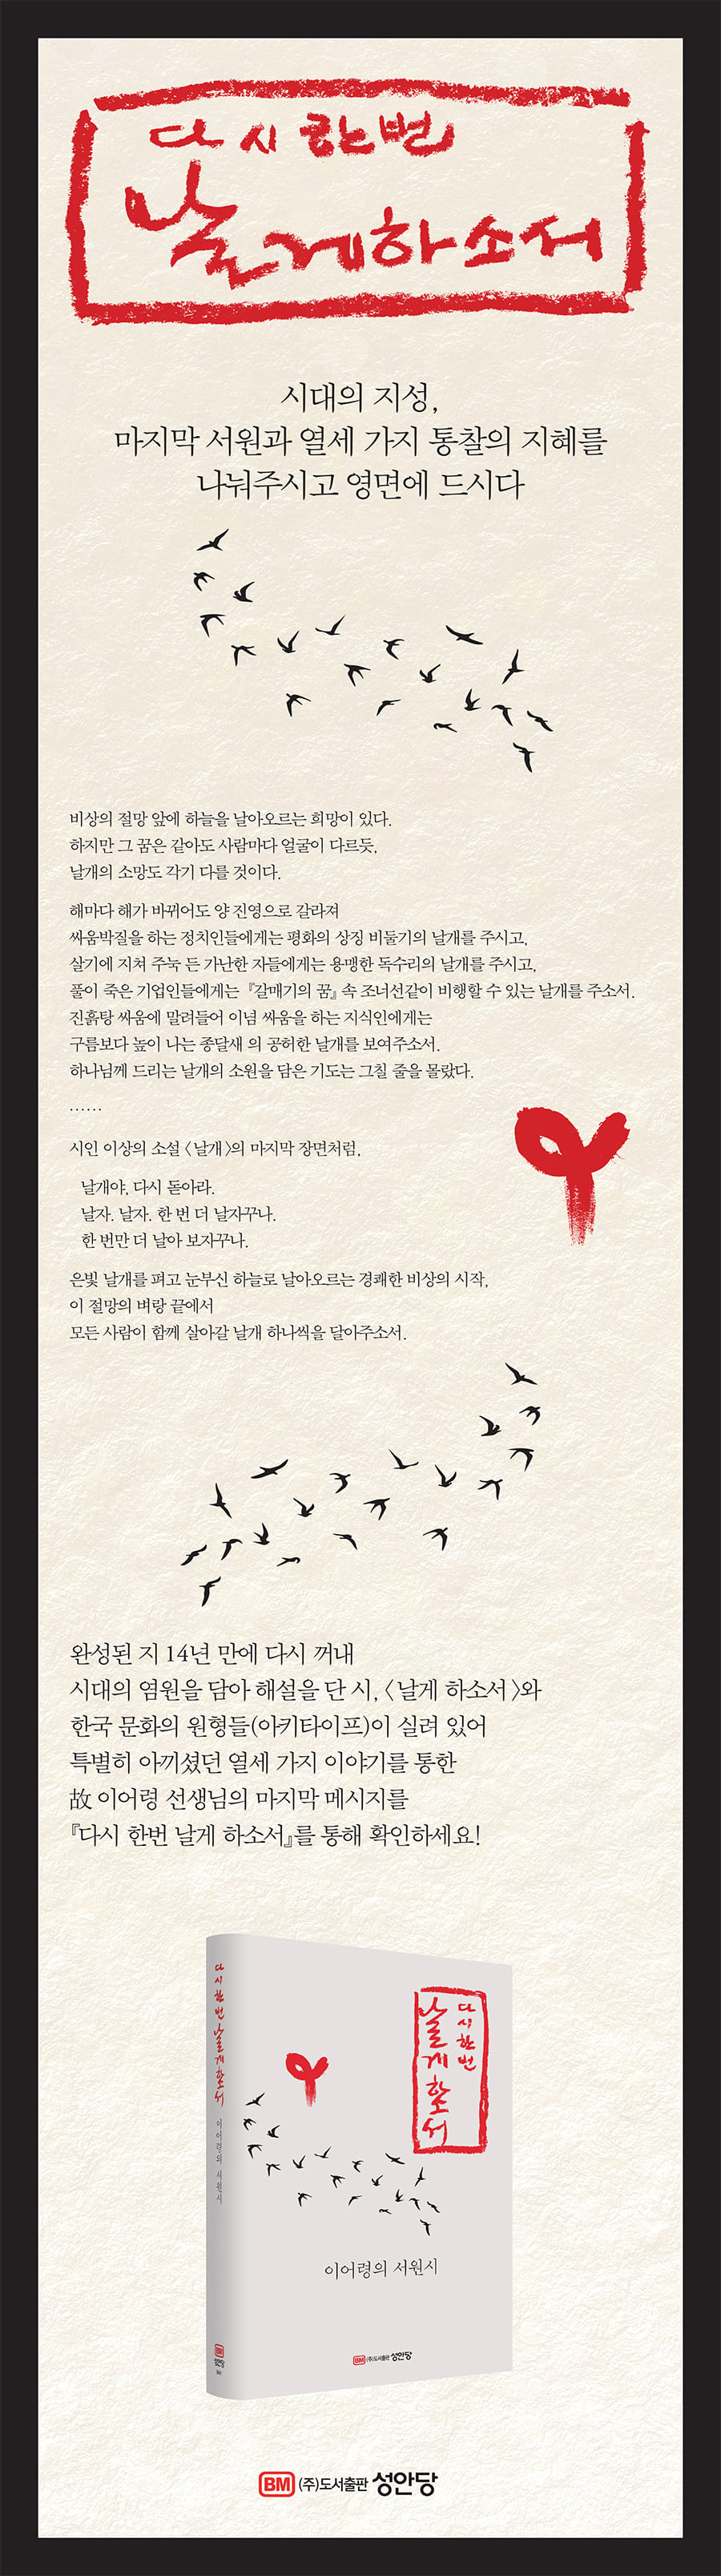 다시 한번
날게 하소서
시대의 지성,
마지막 서원과 열세 가지 통찰의 지혜를
나눠주시고 영면에 드시다
비상의 절망 앞에 하늘을 날아오르는 희망이 있다.
하지만 그 꿈은 같아도 사람마다 얼굴이 다르듯,
날개의 소망도 각기 다를 것이다.
해마다 해가 바뀌어도 양 진영으로 갈라져
싸움박질을 하는 정치인들에게는 평화의 상징 비둘기의 날개를 주시고,
살기에 지쳐 주눅 든 가난한 자들에게는 용맹한 독수리의 날개를 주시고,
풀이 죽은 기업인들에게는 『갈매기의 꿈』 속 조너선같이 비행할 수 있는 날개를 주소서.
진흙탕 싸움에 말려들어 이념 싸움을 하는 지식인에게는
구름보다 높이 나는 종달새 의 공허한 날개를 보여주소서.
하나님께 드리는 날개의 소원을 담은 기도는 그칠 줄을 몰랐다.
……
시인 이상의 소설 〈날개〉의 마지막 장면처럼,
날개야, 다시 돋아라.
날자. 날자. 한 번 더 날자꾸나.
한 번만 더 날아 보자꾸나.
은빛 날개를 펴고 눈부신 하늘로 날아오르는 경쾌한 비상의 시작,
이 절망의 벼랑 끝에서
모든 사람이 함께 살아갈 날개 하나씩을 달아주소서.
완성된 지 14년 만에 다시 꺼내
시대의 염원을 담아 해설을 단 시, 〈날게 하소서〉와
한국 문화의 원형들(아키타이프)이 실려 있어
특별히 아끼셨던 열세 가지 이야기를 통한
故 이어령 선생님의 마지막 메시지를
『다시 한번 날게 하소서』를 통해 확인하세요!
다시 한번 날게 하소서
이어령의 서원시
BM
성안당
다시 한번
날게 하소서
이어령의 서원시
BM (주)도서출판 성안당
BM (주)도서출판 성안당